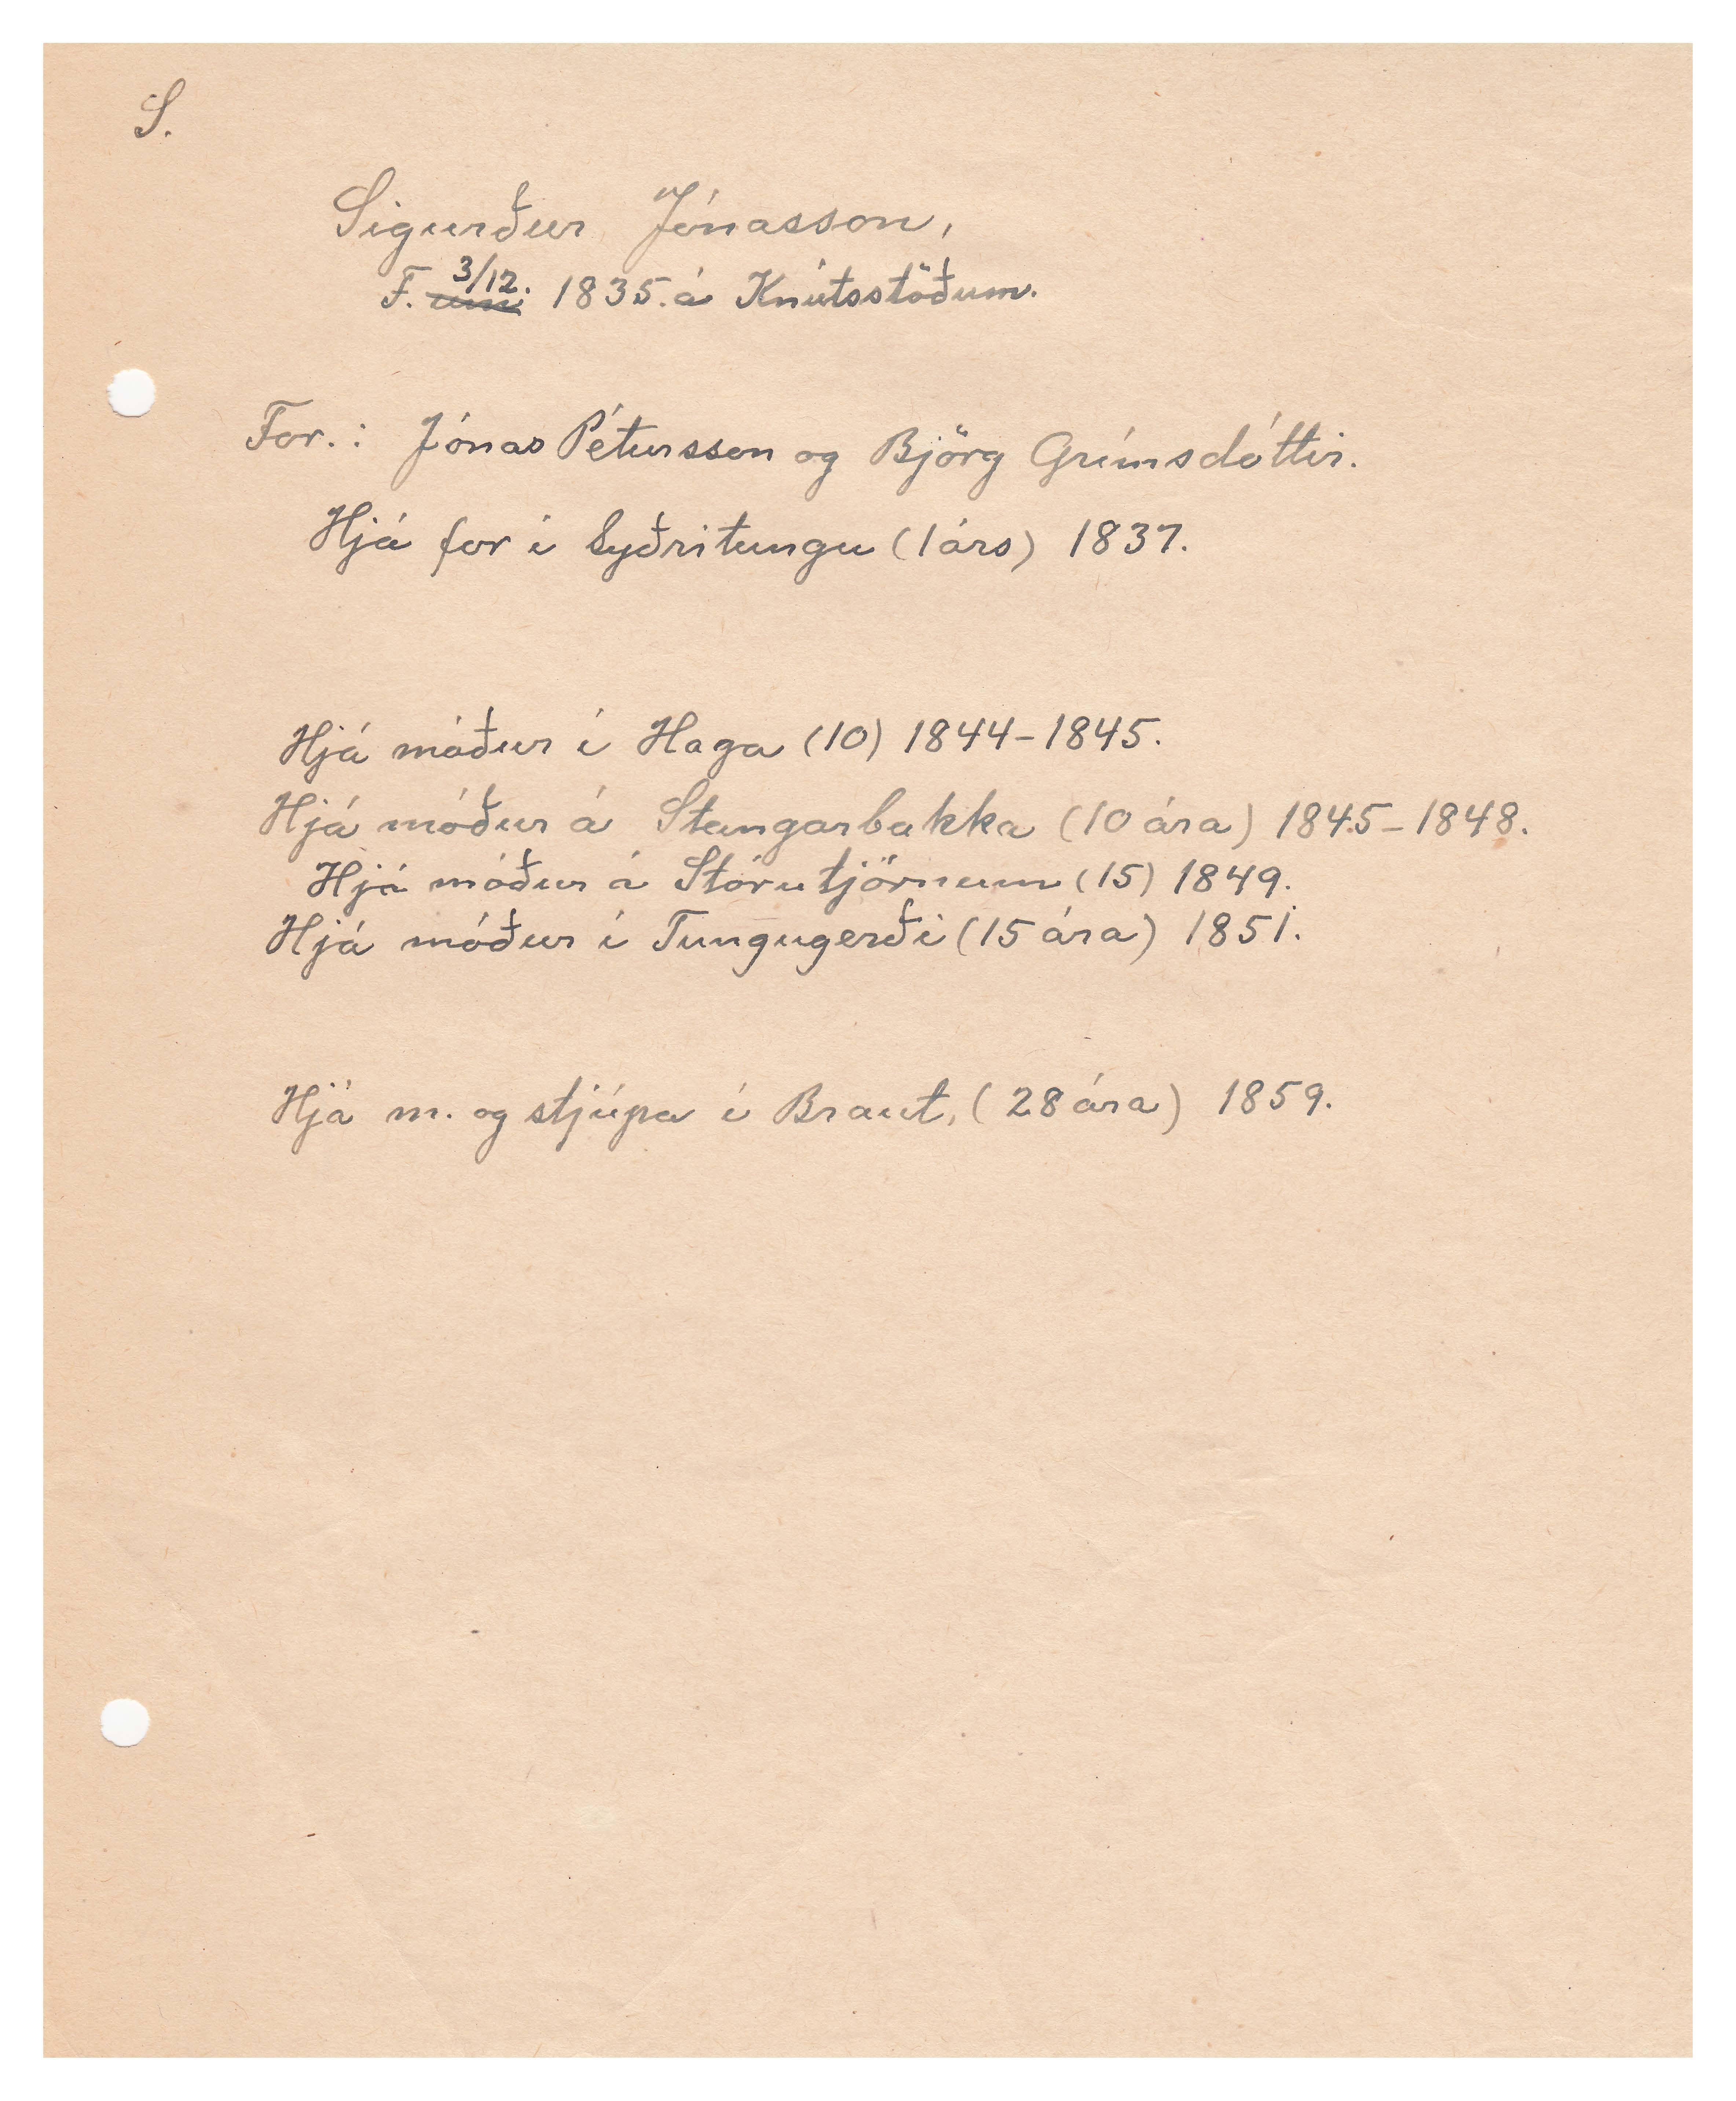 S.
Sigurður Jónasson,
F. 3/12. 1835. á Knútsstöðum.
For.: Jónas Pétursson og Björg Grímsdóttir.
Hjá for í Syðritungu (1 árs) 1837.
Hjá móður í Haga (10) 1844-1845.
Hjá móður á Stangarbakka (10 ára) 1845-1848.
Hjá móður á Stórutjörnum (15) 1849.
Hjá móður í Tungugerði (15 ára) 1851.
Hjá m. og stjúpa í Braut, (28 ára) 1859.